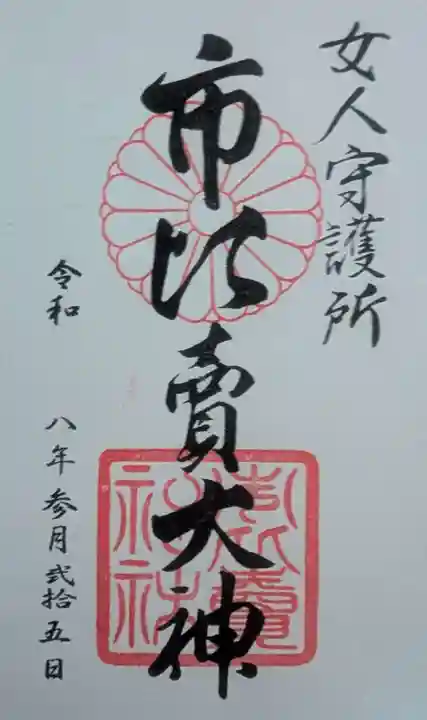 女人守護所
市比賣大神
令和 八年参月弐拾五日